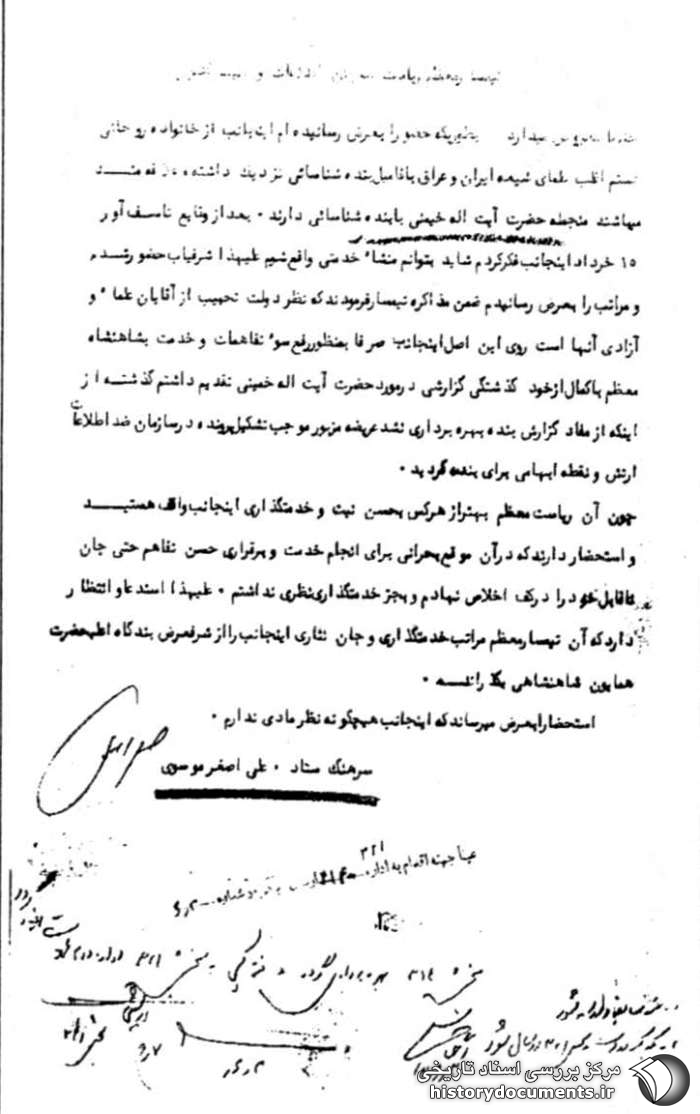 تیمسار معظم ریاست سازمان اطلاعات و امنیت کشور
محترما معروض میدارد بطوریکه حضورا بعرض رسانیده ام اینجانب از خانواده روحانی
هستم اغلب علمای شیعه ایران و عراق با فامیل بنده شناسائی نزدیک داشته و علاقه مند
میباشند منجمله حضرت آیت اله خمینی با بنده شناسائی دارند ۰ بعد از وقایع تاسف آور
۱۵ خرداد اینجانب فکر کردم شاید بتوانم منشاء خدمتی واقع شوم علیهذا شرفیاب حضور شده
و مراتب را بعرض رسانیدم ضمن مذاکره تیمسار فرمودند که نظر دولت تحبیب از آقایان علماء و
آزادی آنها است روی این اصل اینجانب صرفا بمنظور رفع سوء تفاهمات و خدمت بشاهنشاه
معظم با کمال از خود گذشتگی گزارشی در مورد حضرت آیت اله خمینی تقدیم داشتم گذشته از
اینکه از مفاد گزارش بنده بهره برداری نشد عریضه مزبور موجب تشکیل پرونده در سازمان ضد اطلاعات
ارتش و نقطه ابهامی برای بنده گردید ۰
چون آن ریاست معظم بهتر از هر کس بحسن نیت و خدمتگذاری اینجانب واقف هستید
و استحضار دارند که در آن موقع بحرانی برای انجام خدمت و برقراری حسن تفاهم حتی جان
ناقابل خود را در کف اخلاص نهادم و بجز خدمتگذاری نظری نداشتم ۰ علیهذا استدعا و انتظار
دارد که آن تیمسار معظم مراتب خدمتگذاری و جان نثاری اینجانب را از شرفعرض بندگاه اعلیحضرت
همایون شاهنشاهی بگذرانند ۰
استحضارا بعرض میرساند که اینجانب هیچگونه نظر مادی ندارم ۰
سرهنگ ستاد ۰ علی اصغر موسوی
عینا جهت اقدام به اداره
۳۲۱
بخش ۳۱۴ بهره برداری گردد
بخش ۳۲۱
مرکز بررسی اسناد تاریخی
historydocuments.ir